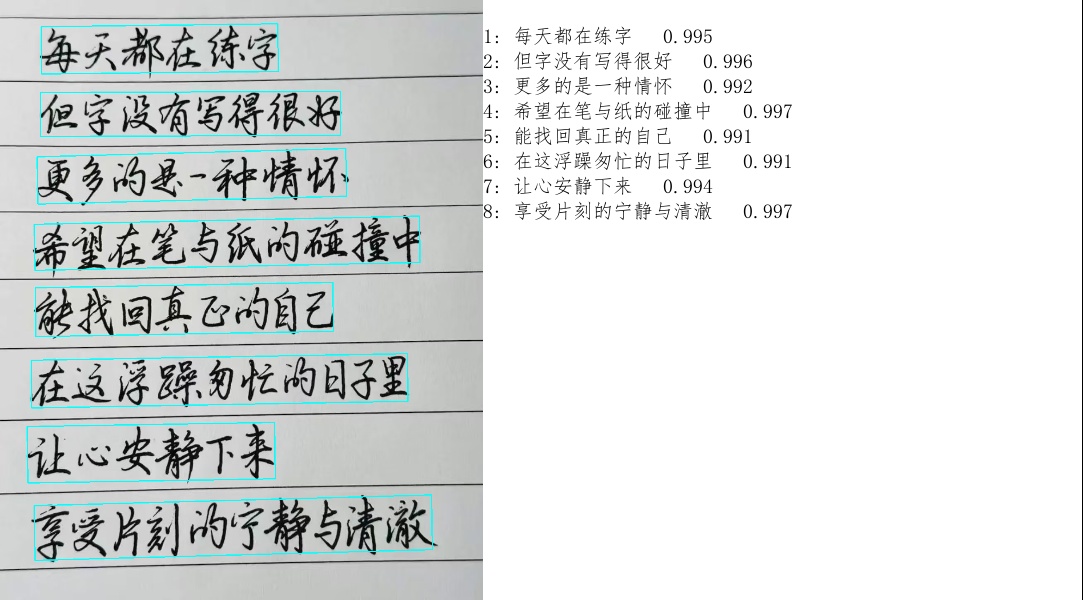 每天都在练字
但字没有写得很好
更多的是一种情怀
希望在笔与纸的碰撞中
能找回真正的自己
在这浮躁匆忙的日子里
让心安静下来
享受片刻的宁静与清澈
1: 每天都在练字 0.995
2: 但字没有写得很好 0.996
3: 更多的是一种情怀 0.992
4: 希望在笔与纸的碰撞中 0.997
5: 能找回真正的自己 0.991
6: 在这浮躁匆忙的日子里 0.991
7: 让心安静下来 0.994
8: 享受片刻的宁静与清澈 0.997